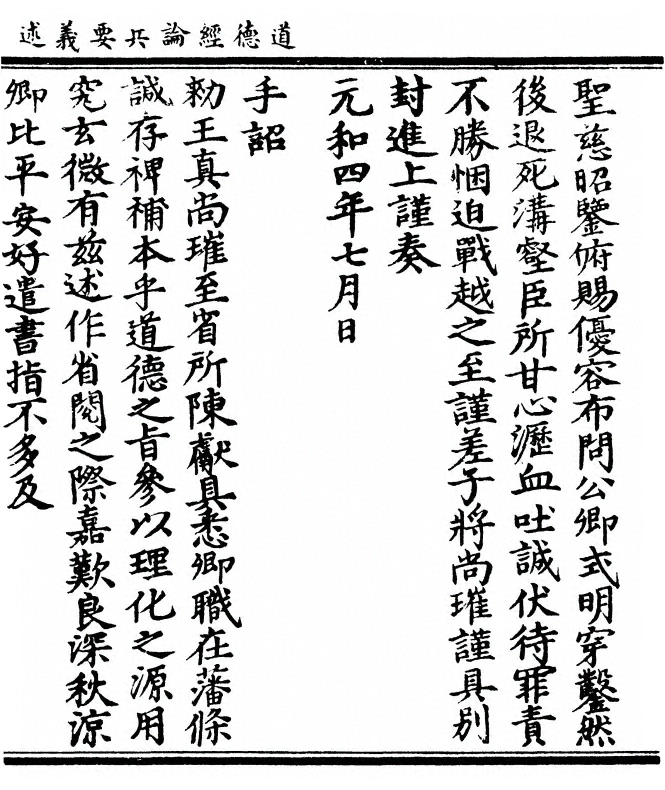 道德經論兵要義述
聖慈昭鑒俯賜優容布問公卿式明穿鑿然
後退死溝壑臣所甘心瀝血吐誠伏待罪責
不勝悃迫戰越之至謹差子將尚璀謹具別
封進上謹奏
元和四年七月日
手詔
勑王真尚璀至省所陳獻具悉卿職在藩條
誠存裨補本乎道德之旨參以理化之源用
究玄微有茲述作省閱之際嘉歎良深秋凉
卿比平安好遣書指不多及